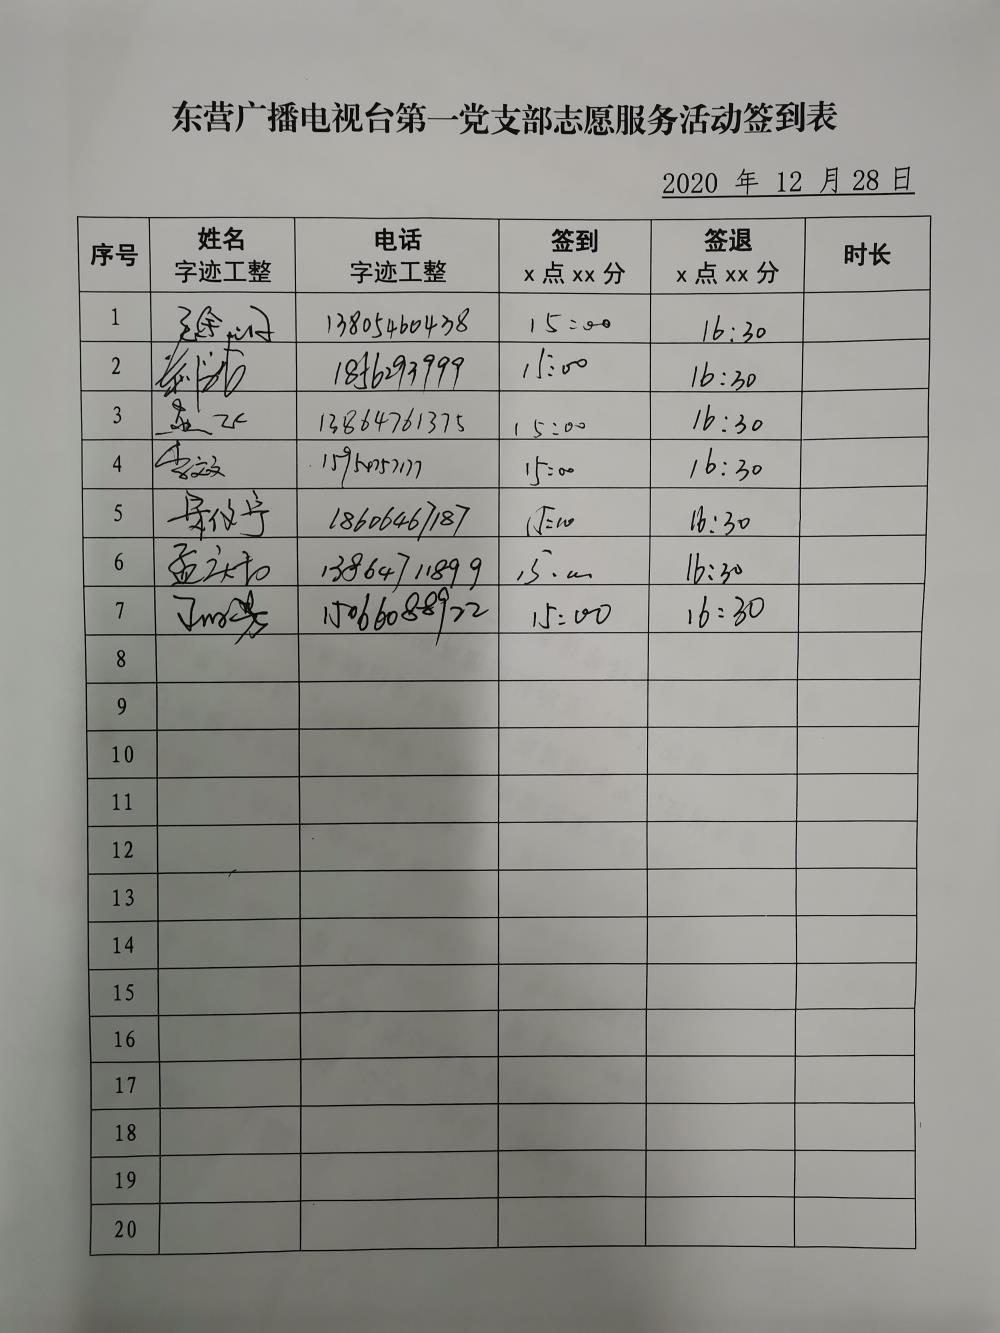 东营广播电视台第一党支部志愿服务活动签到表
2020 年 12 月 28 日
序号 姓名 字迹工整 电话 字迹工整 签到 x 点 xx 分 签退 x 点 xx 分 时长
1 13805460438 15:00 16:30
2 15:00 16:30
3 13864761375 15:00 16:30
4 15:00 16:30
5 18606467187 15:00 16:30
6 孟 13864711899 16:30
7 15066088922 15:00 16:30
8
9
10
11
12
13
14
15
16
17
18
19
20